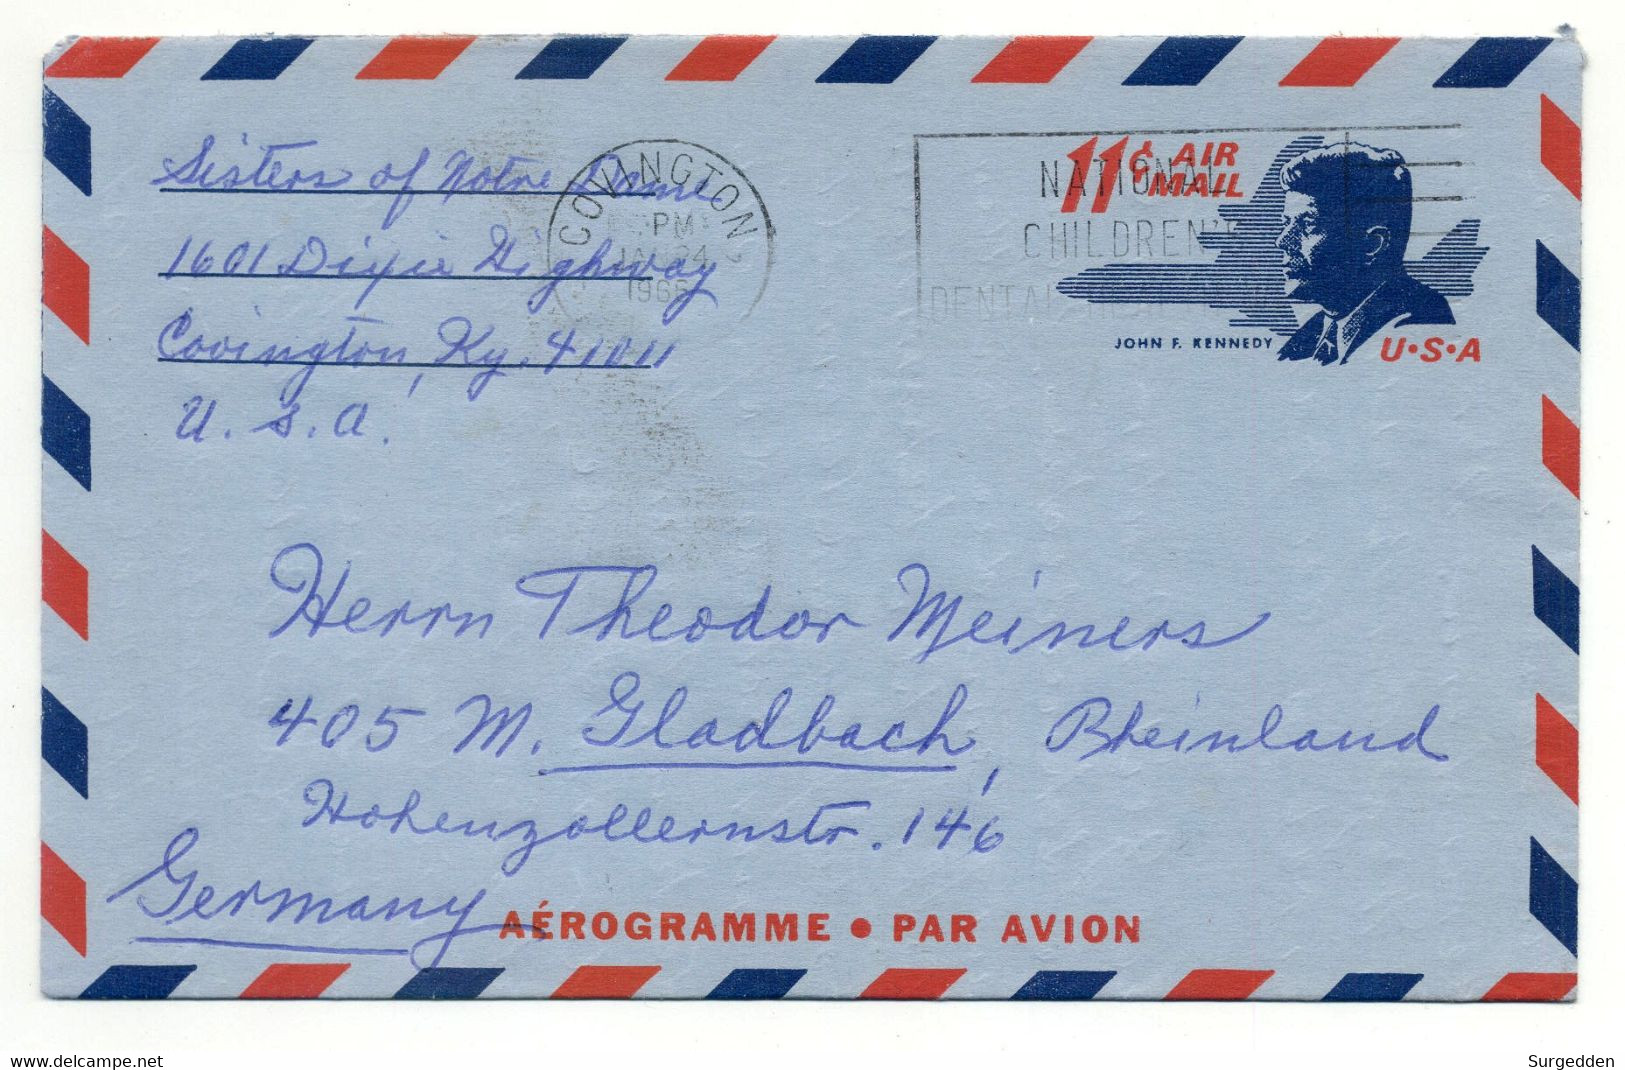 Sisters of Notre Dame
1601 Dixie Highway
Covington, Ky. 41011
U. S. A.
COVINGTON
PM
JAN 24
1966
NATIONAL
CHILDREN'S
DENTAL
11¢ AIR MAIL
JOHN F. KENNEDY
U·S·A
Herrn Theodor Meiners
405 M. Gladbach, Rheinland
Hohenzollernstr. 146
Germany
AÉROGRAMME • PAR AVION
www.delcampe.net
Surgedden